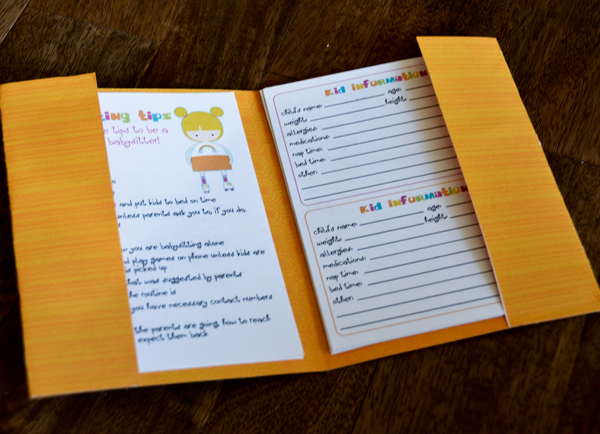 ting tips
e tips to be a
babysitter!
and put kids to bed on time
unless parents ask you to, if you do,
w you are babysitting alone
d play games on phone unless kids are
s picked up
hat was suggested by parents
the routine is
you have necessary contact numbers
the parents are going, how to reach
expect them back
Kid information
child's name: age:
weight: height:
allergies:
medications:
nap time:
bed time:
other:
Kid information
child's name: age:
weight: height:
allergies:
medications:
nap time:
bed time:
other: